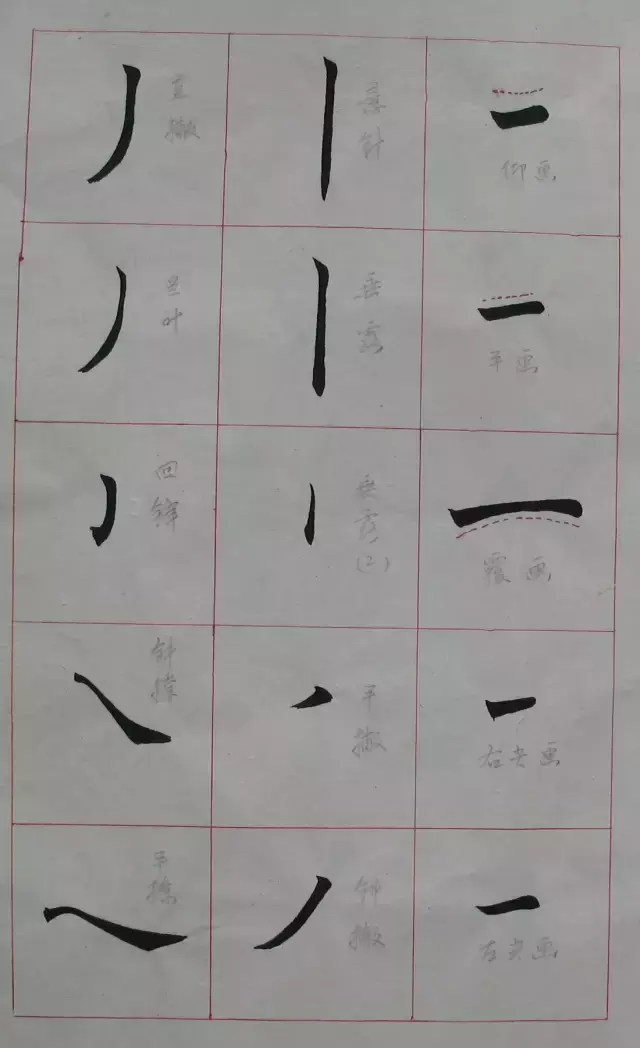 仰画
平画
覆画
右尖画
左尖画
悬针
垂露
垂露(二)
平撇
斜撇
直撇
兰叶
回锋
斜捺
平捺